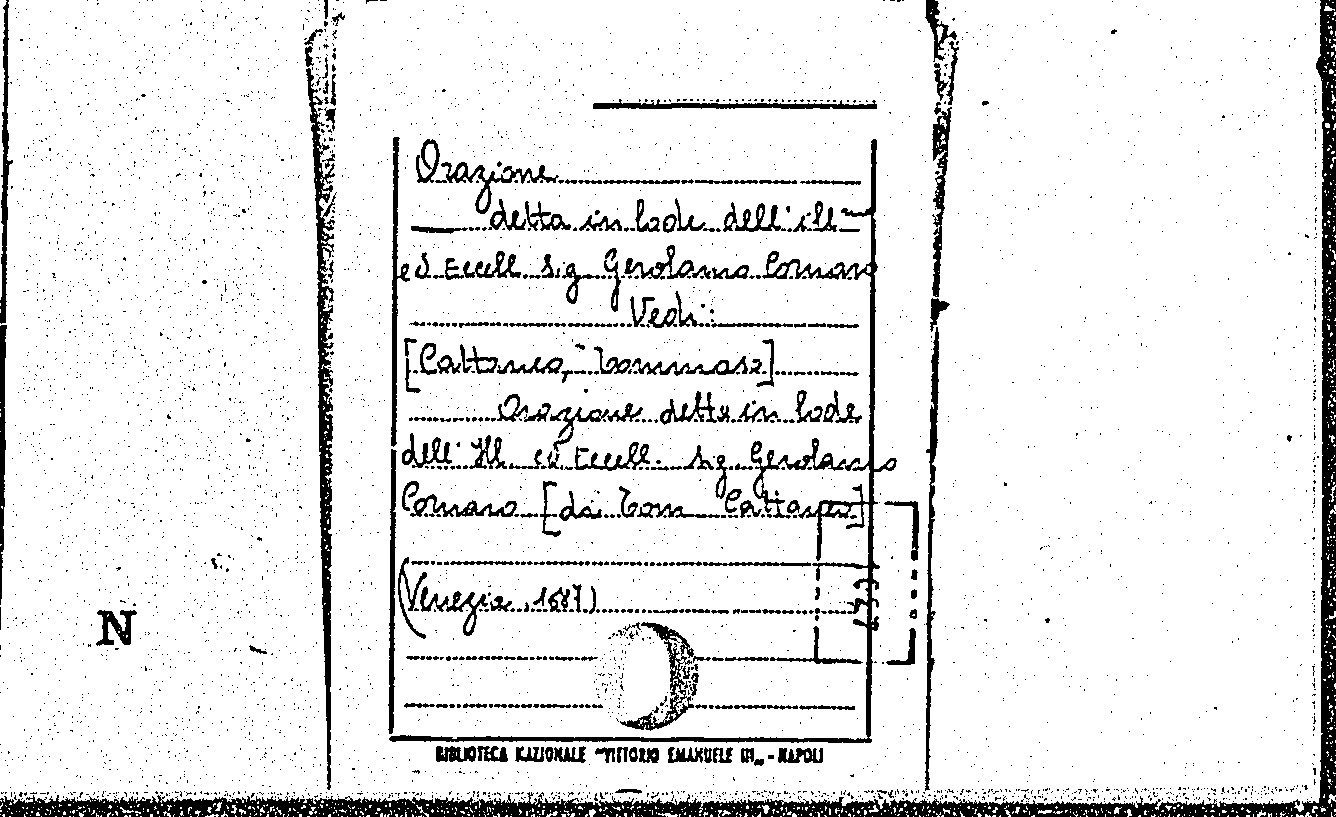 Orazione
detta in lode dell'ill.mo
ed Eccell. Sig. Gerolamo Cornaro
Vedi:
[Cattaneo, Tommaso]
Orazione detta in lode
dell'Ill. ed Eccell. Sig. Gerolamo
Cornaro [da Tom Cattaneo]
(Venezia, 1687)
N
BIBLIOTECA NAZIONALE "VITTORIO EMANUELE III" - NAPOLI